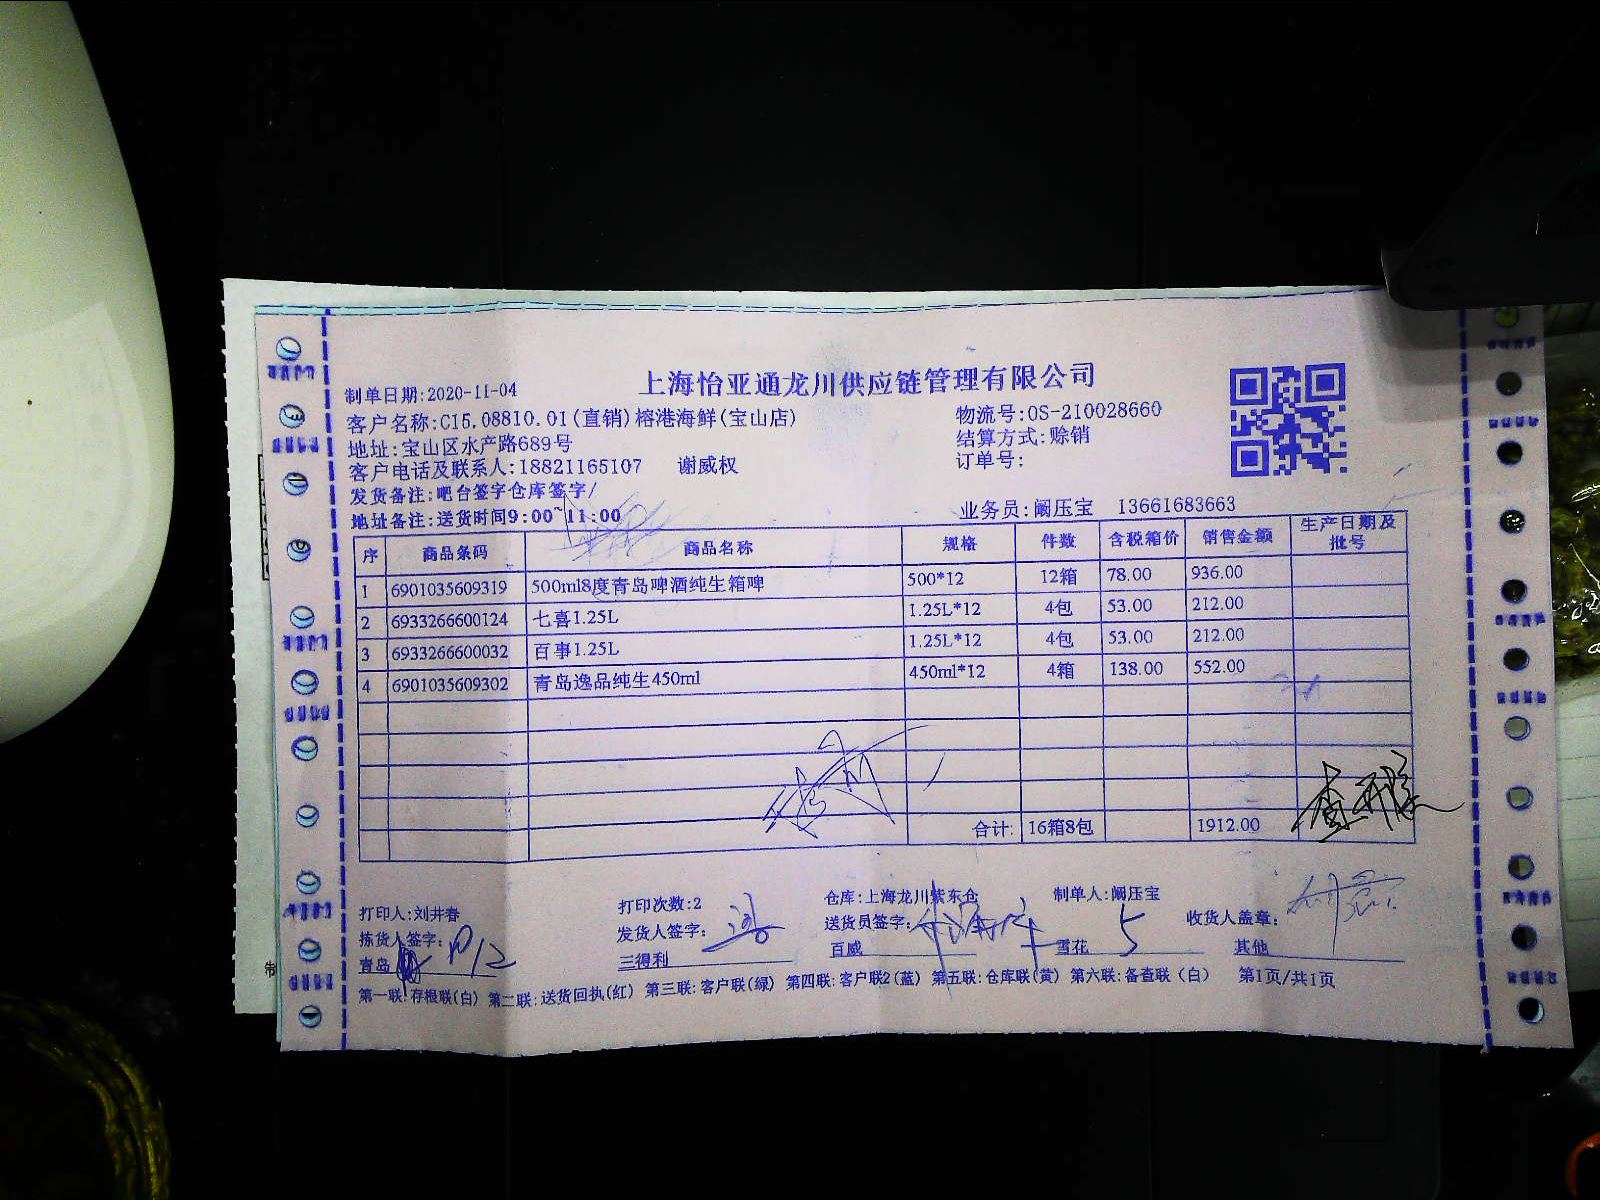 上海怡亚通龙川供应链管理有限公司
制单日期:2020-11-04
客户名称:C15.08810.01(直销)榕港海鲜(宝山店) 物流号:OS-210028660
地址:宝山区水产路689号 结算方式:赊销
客户电话及联系人:18821165107 谢威权 订单号:
发货备注:吧台签字仓库签字/
地址备注:送货时间9:00~11:00 业务员:阚压宝 13661683663
序 商品条码 商品名称 规格 件数 含税箱价 销售金额 生产日期及批号
1 6901035609319 500ml8度青岛啤酒纯生箱啤 500*12 12箱 78.00 936.00
2 6933266600124 七喜1.25L 1.25L*12 4包 53.00 212.00
3 6933266600032 百事1.25L 1.25L*12 4包 53.00 212.00
4 6901035609302 青岛逸品纯生450ml 450ml*12 4箱 138.00 552.00
合计: 16箱8包 1912.00
打印人:刘井春 打印次数:2 仓库:上海龙川紫东仓 制单人:阚压宝
拣货人签字: 发货人签字: 送货员签字: 收货人盖章:
青岛 12 三得利 百威 雪花 5 其他
第一联:存根联(白) 第二联:送货回执(红) 第三联:客户联(绿) 第四联:客户联2(蓝) 第五联:仓库联(黄) 第六联:备查联(白) 第1页/共1页